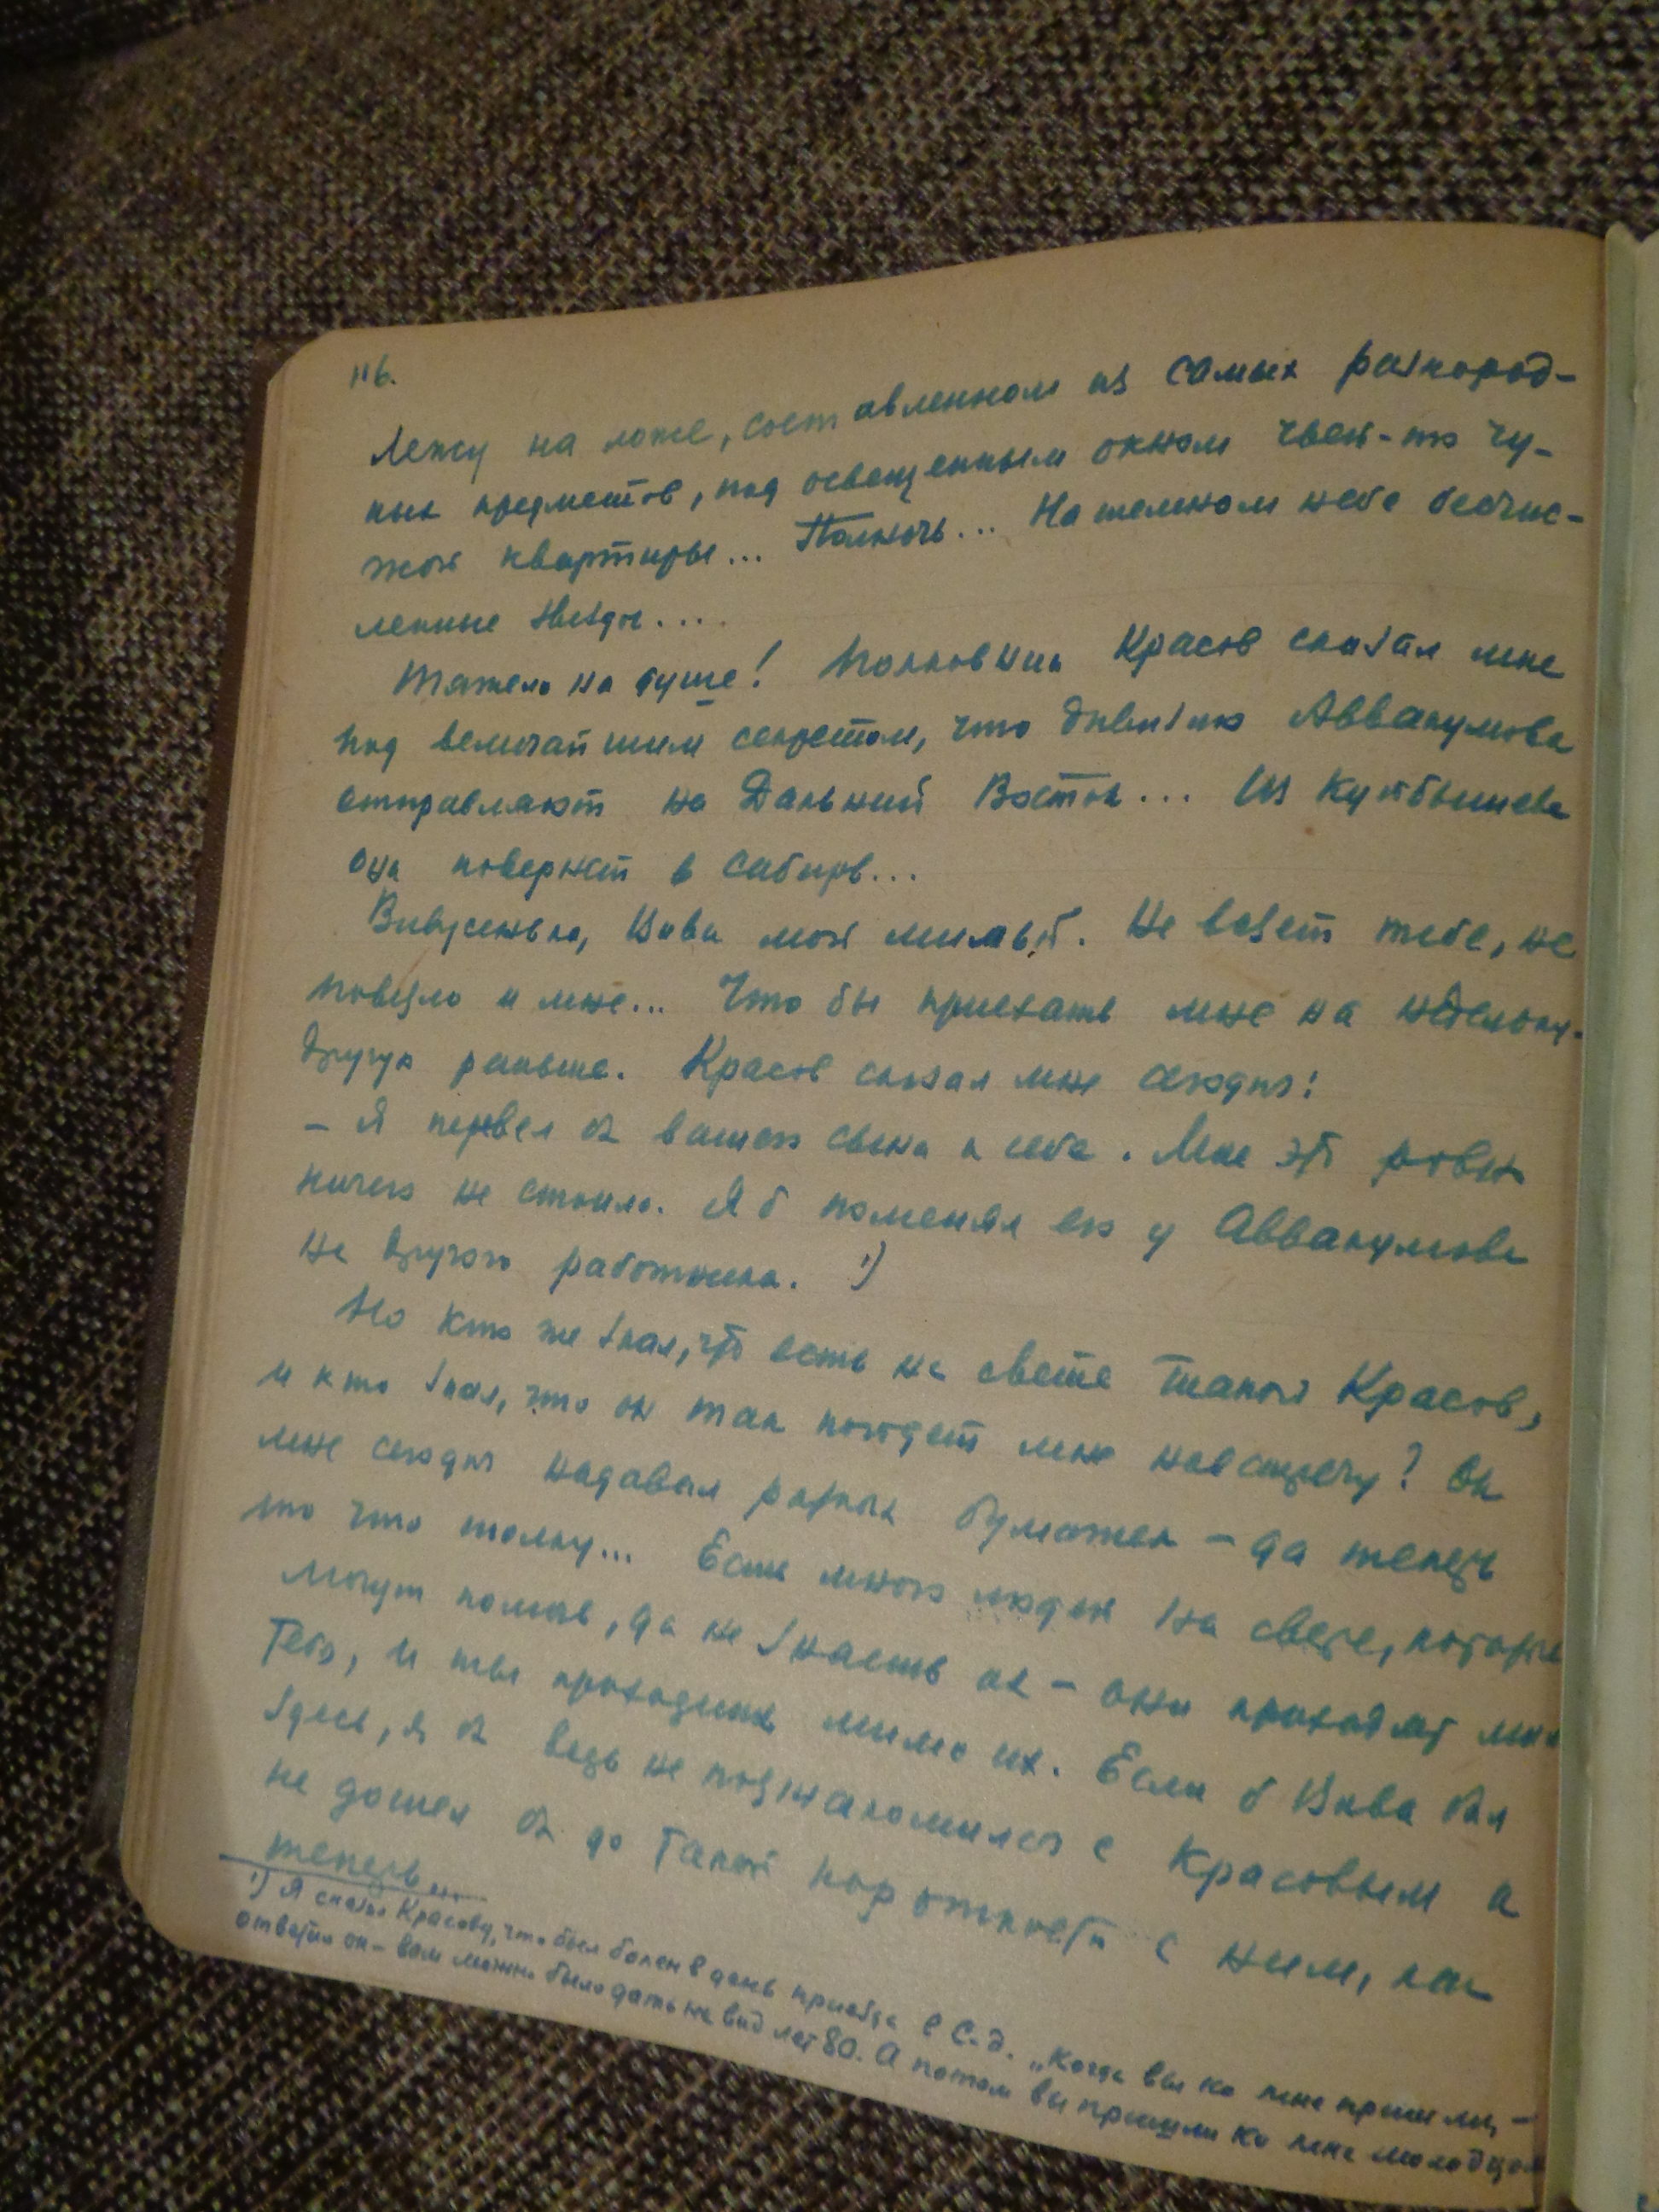 116.
Лежу на ложе, составленном из самых разнород-
ных предметов, под освещенным окном чьей-то чу-
жой квартиры... Полночь... На темном небе бесчис-
ленные звезды....
Тяжело на душе! Полковник Красов сказал мне
под величайшим секретом, что дивизию Аввакумова
отправляют на Дальний Восток... Из Куйбышева
она повернет в Сибирь...
Вивусенька, Вива мой милый. Не везет тебе, не
повезло и мне... Что бы приехать мне на недельку-
другую раньше. Красов сказал мне сегодня:
- Я перевел бы вашего сына к себе. Мне это ровно
ничего не стоило. Я б поменял его у Аввакумова
на другого работника. 1)
Но кто же знал, что есть на свете такой Красов,
и кто знал, что он так пойдет мне навстречу? Он
мне сегодня надавал разных бумажек - да теперь
то что толку... Есть много людей на свете, которые
могут помочь, да не знаешь их - они проходят мимо
тебя, и ты проходишь мимо их. Если б Вива был
здесь, я бы ведь не познакомился с Красовым и
не дошел бы до такой короткости с ним, как
теперь...
1) Я сказал Красову, что был болен в день приезда в С.Д. „Когда вы ко мне пришли, -
ответил он - вам можно было дать на вид лет 80. А потом вы пришли ко мне молодцом